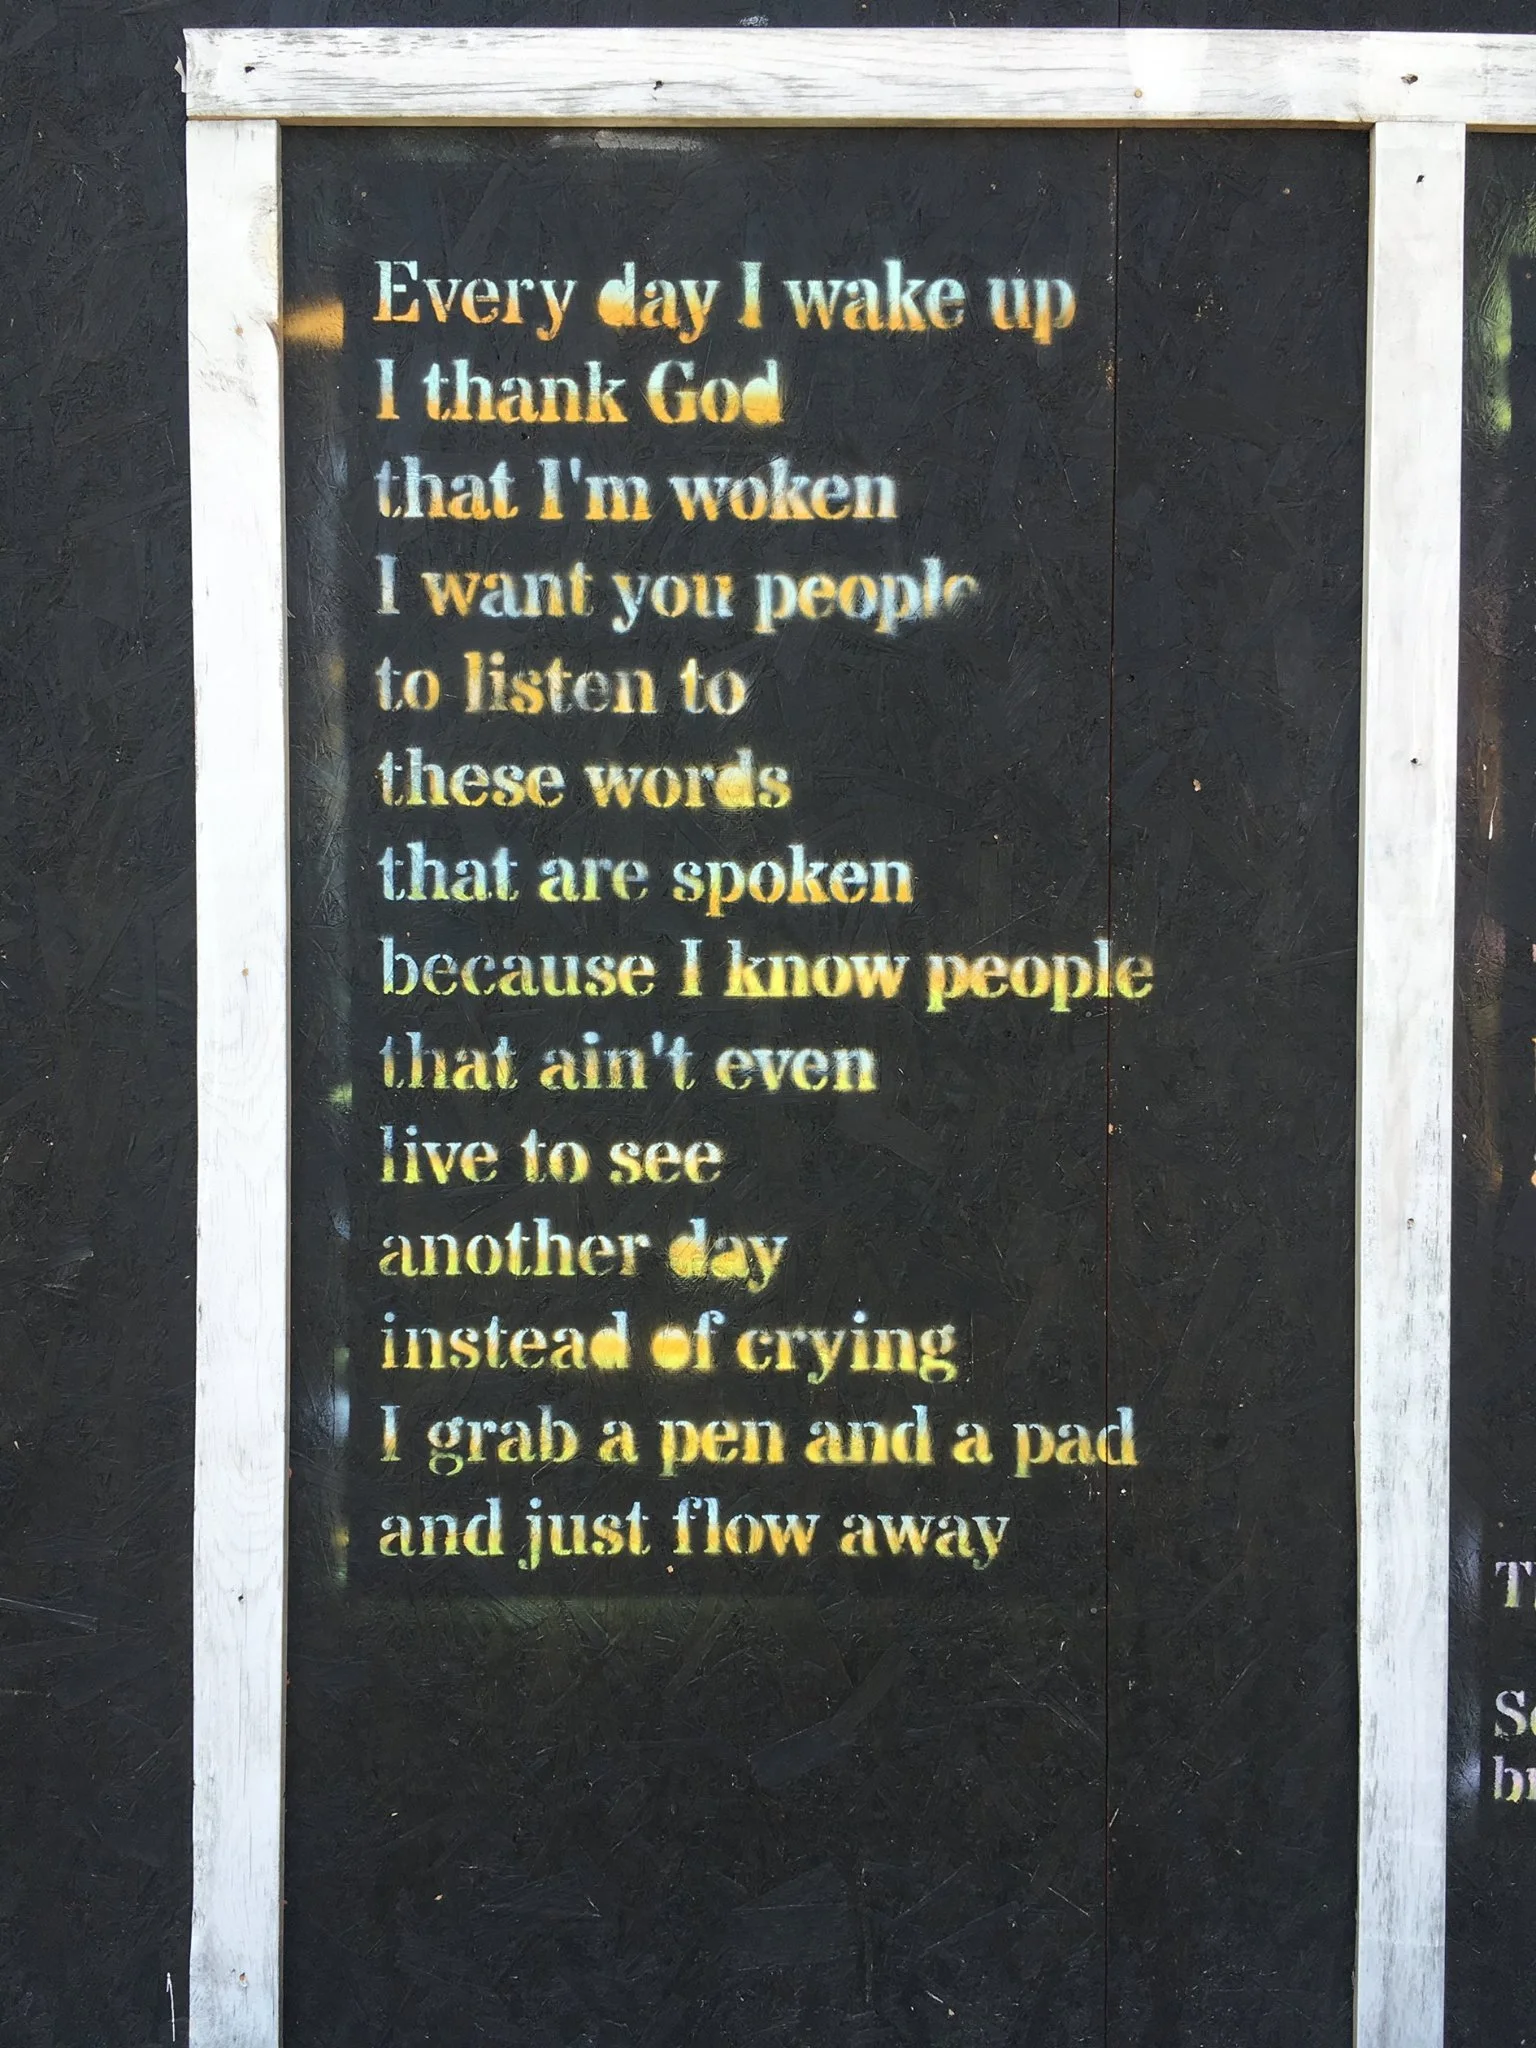 Every day I wake up
I thank God
that I'm woken
I want you people
to listen to
these words
that are spoken
because I know people
that ain't even
live to see
another day
instead of crying
I grab a pen and a pad
and just flow away